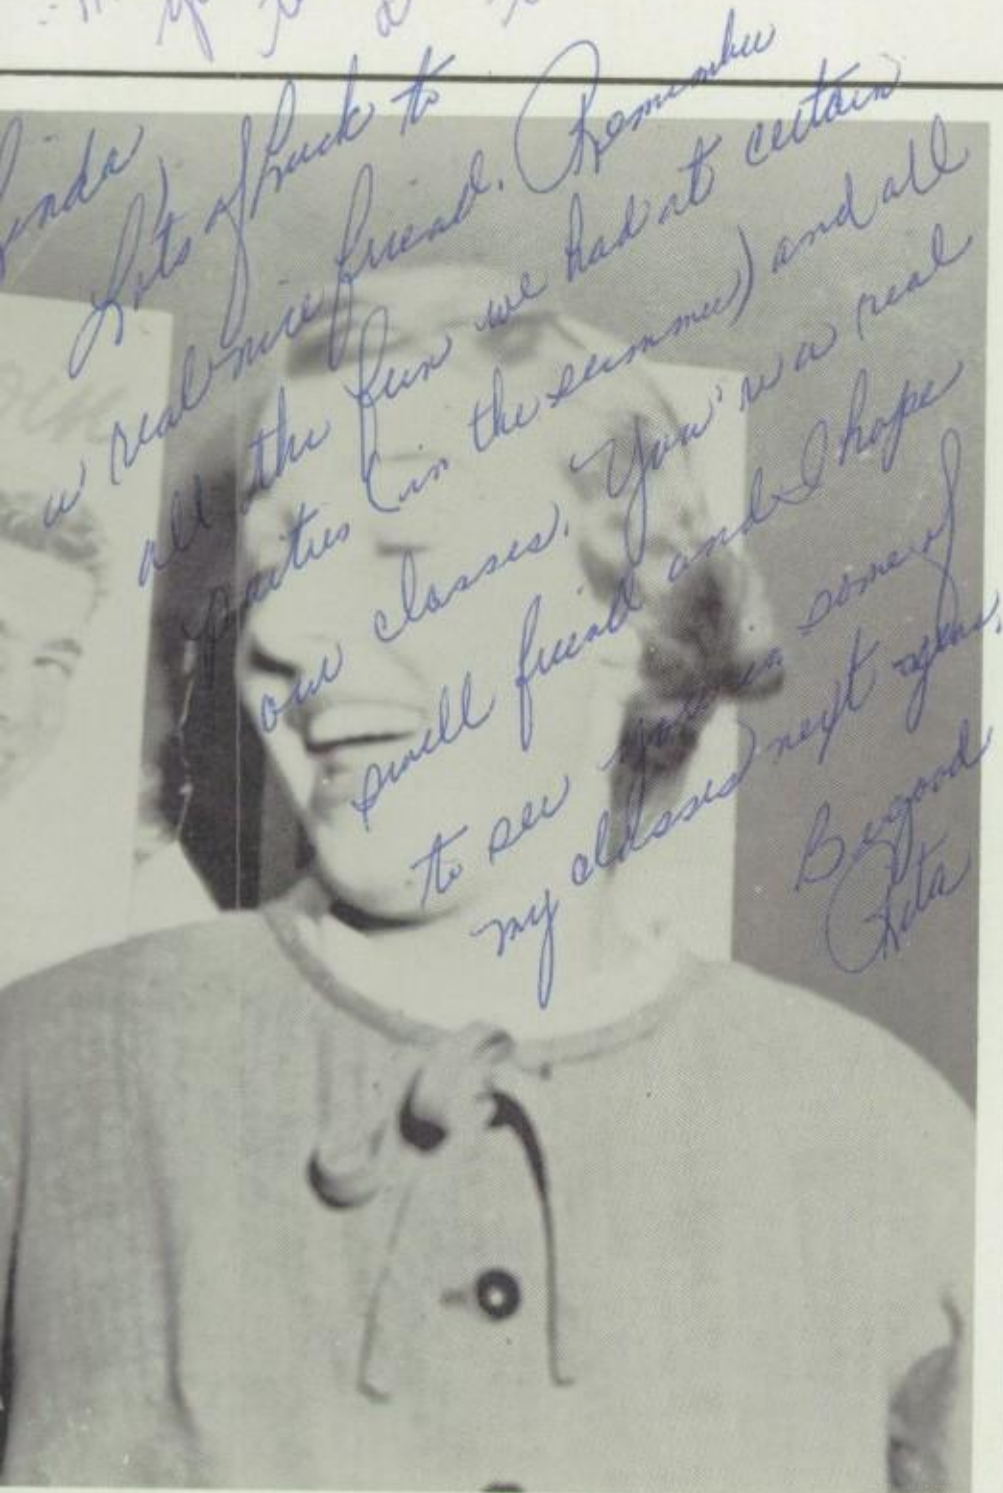 Linda
Lots of luck to
a real nice friend. Remember
all the fun we had at certain
parties (in the summer) and all
our classes. You're a real
swell friend and I hope
to see you in some of
my classes next year.
Be good
Rita